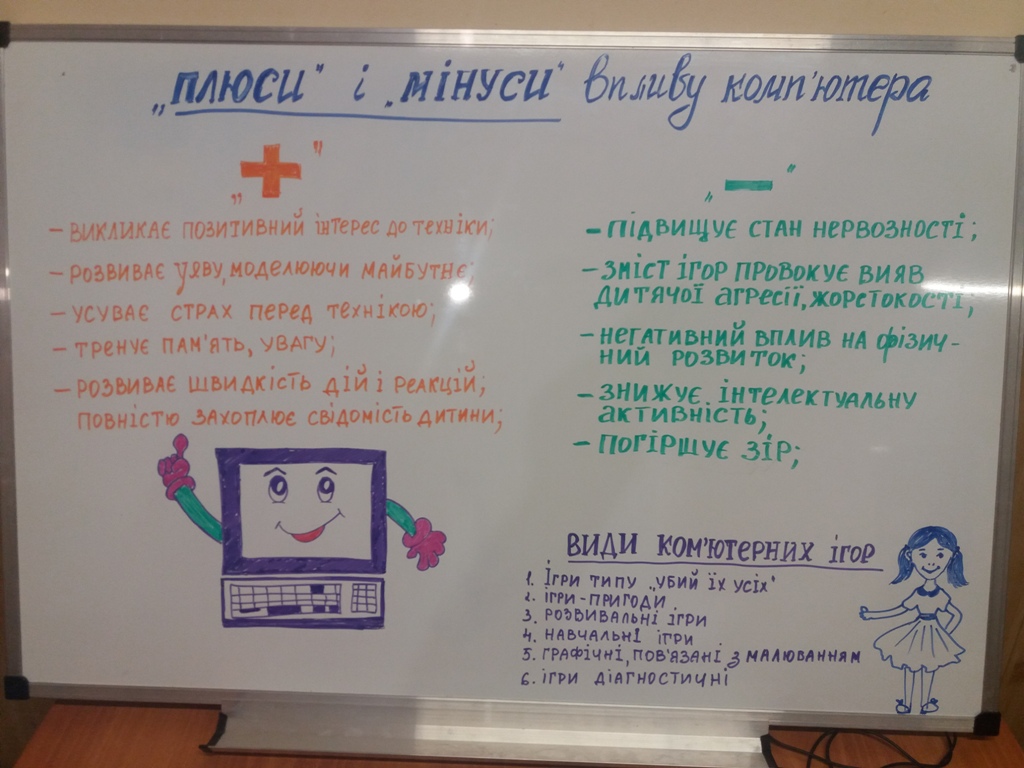 „ПЛЮСИ" і „МІНУСИ" впливу комп'ютера
„+"
- ВИКЛИКАЄ ПОЗИТИВНИЙ ІНТЕРЕС ДО ТЕХНІКИ;
- РОЗВИВАЄ УЯВУ, МОДЕЛЮЮЧИ МАЙБУТНЄ;
- УСУВАЄ СТРАХ ПЕРЕД ТЕХНІКОЮ;
- ТРЕНУЄ ПАМ'ЯТЬ, УВАГУ;
- РОЗВИВАЄ ШВИДКІСТЬ ДІЙ І РЕАКЦІЙ;
ПОВНІСТЮ ЗАХОПЛЮЄ СВІДОМІСТЬ ДИТИНИ;
„-"
- ПІДВИЩУЄ СТАН НЕРВОЗНОСТІ;
- ЗМІСТ ІГОР ПРОВОКУЄ ВИЯВ
ДИТЯЧОЇ АГРЕСІЇ, ЖОРСТОКОСТІ;
- НЕГАТИВНИЙ ВПЛИВ НА ФІЗИЧ-
НИЙ РОЗВИТОК;
- ЗНИЖУЄ ІНТЕЛЕКТУАЛЬНУ
АКТИВНІСТЬ;
- ПОГІРШУЄ ЗІР;
ВИДИ КОМ'ЮТЕРНИХ ІГОР
1. ІГРИ ТИПУ „УБИЙ ЇХ УСІХ"
2. ІГРИ-ПРИГОДИ
3. РОЗВИВАЛЬНІ ІГРИ
4. НАВЧАЛЬНІ ІГРИ
5. ГРАФІЧНІ, ПОВ'ЯЗАНІ З МАЛЮВАННЯМ
6. ІГРИ ДІАГНОСТИЧНІ